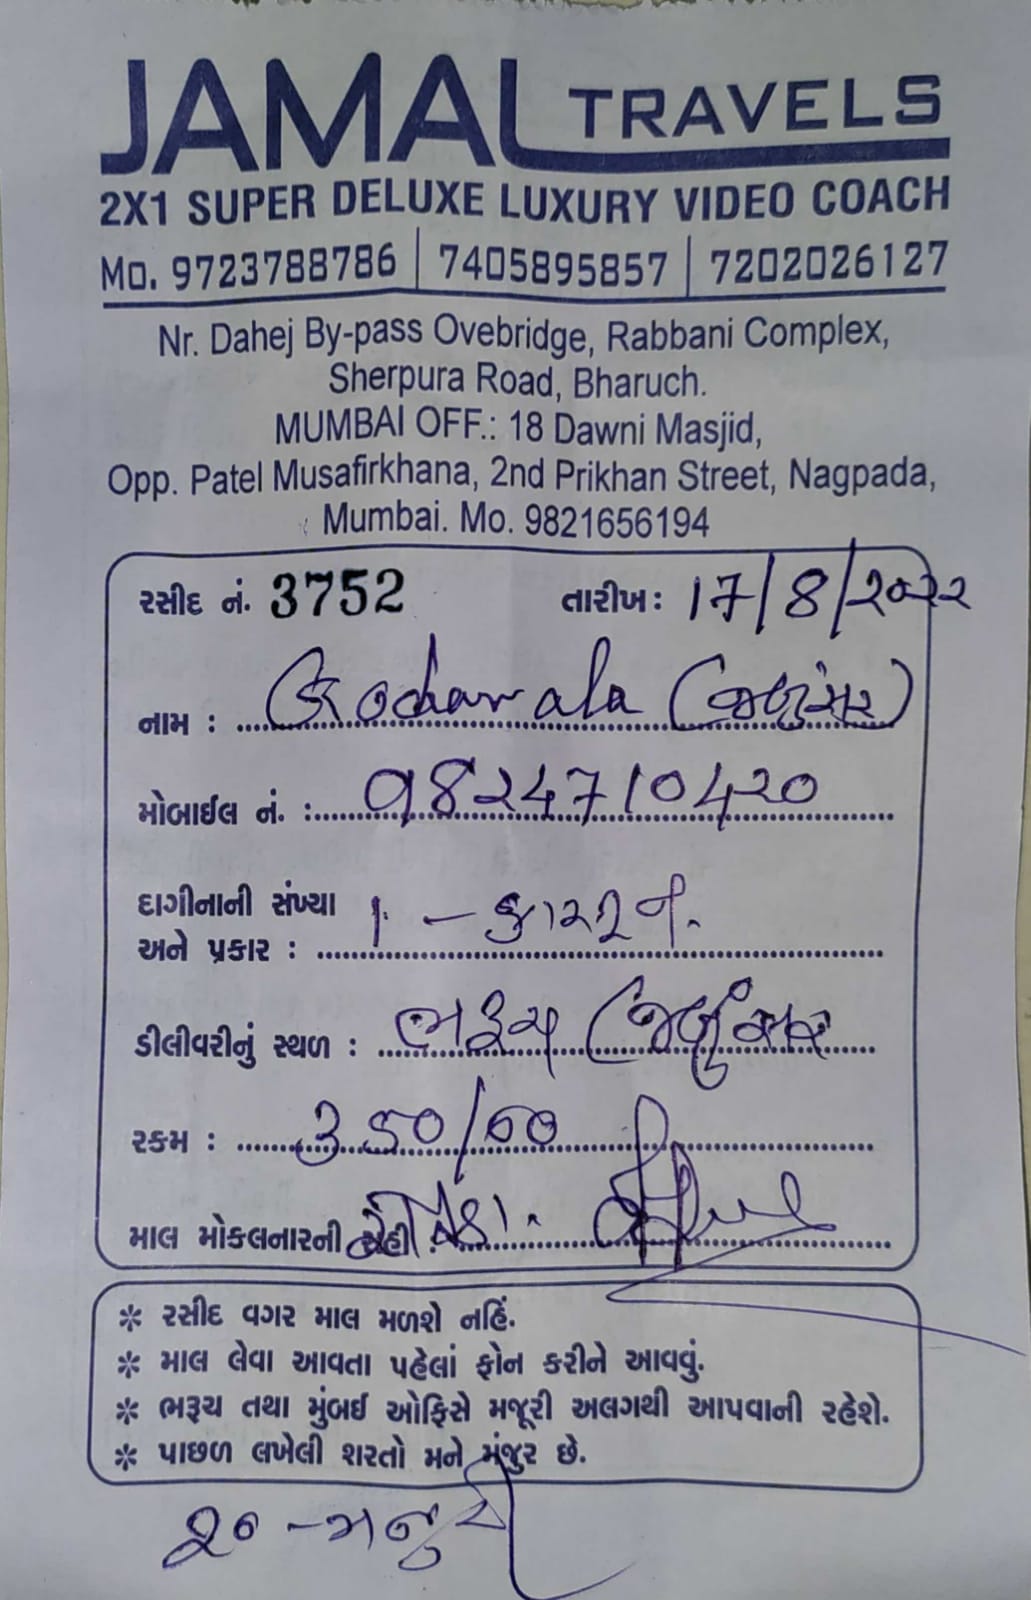 JAMAL TRAVELS
2X1 SUPER DELUXE LUXURY VIDEO COACH
Mo. 9723788786 | 7405895857 | 7202026127
Nr. Dahej By-pass Ovebridge, Rabbani Complex,
Sherpura Road, Bharuch.
MUMBAI OFF.: 18 Dawni Masjid,
Opp. Patel Musafirkhana, 2nd Prikhan Street, Nagpada,
Mumbai. Mo. 9821656194
રસીદ નં. 3752 તારીખ: 17/8/૨૦૨૨
નામ :
મોબાઈલ નં. : 9824710420
દાગીનાની સંખ્યા
અને પ્રકાર : 1 -
ડીલીવરીનું સ્થળ : ભરૂચ
રકમ :
માલ મોકલનારની સહી :
* રસીદ વગર માલ મળશે નહિં.
* માલ લેવા આવતા પહેલાં ફોન કરીને આવવું.
* ભરૂચ તથા મુંબઈ ઓફિસે મજૂરી અલગથી આપવાની રહેશે.
* પાછળ લખેલી શરતો મને મંજુર છે.
૨૦ - મજુરી